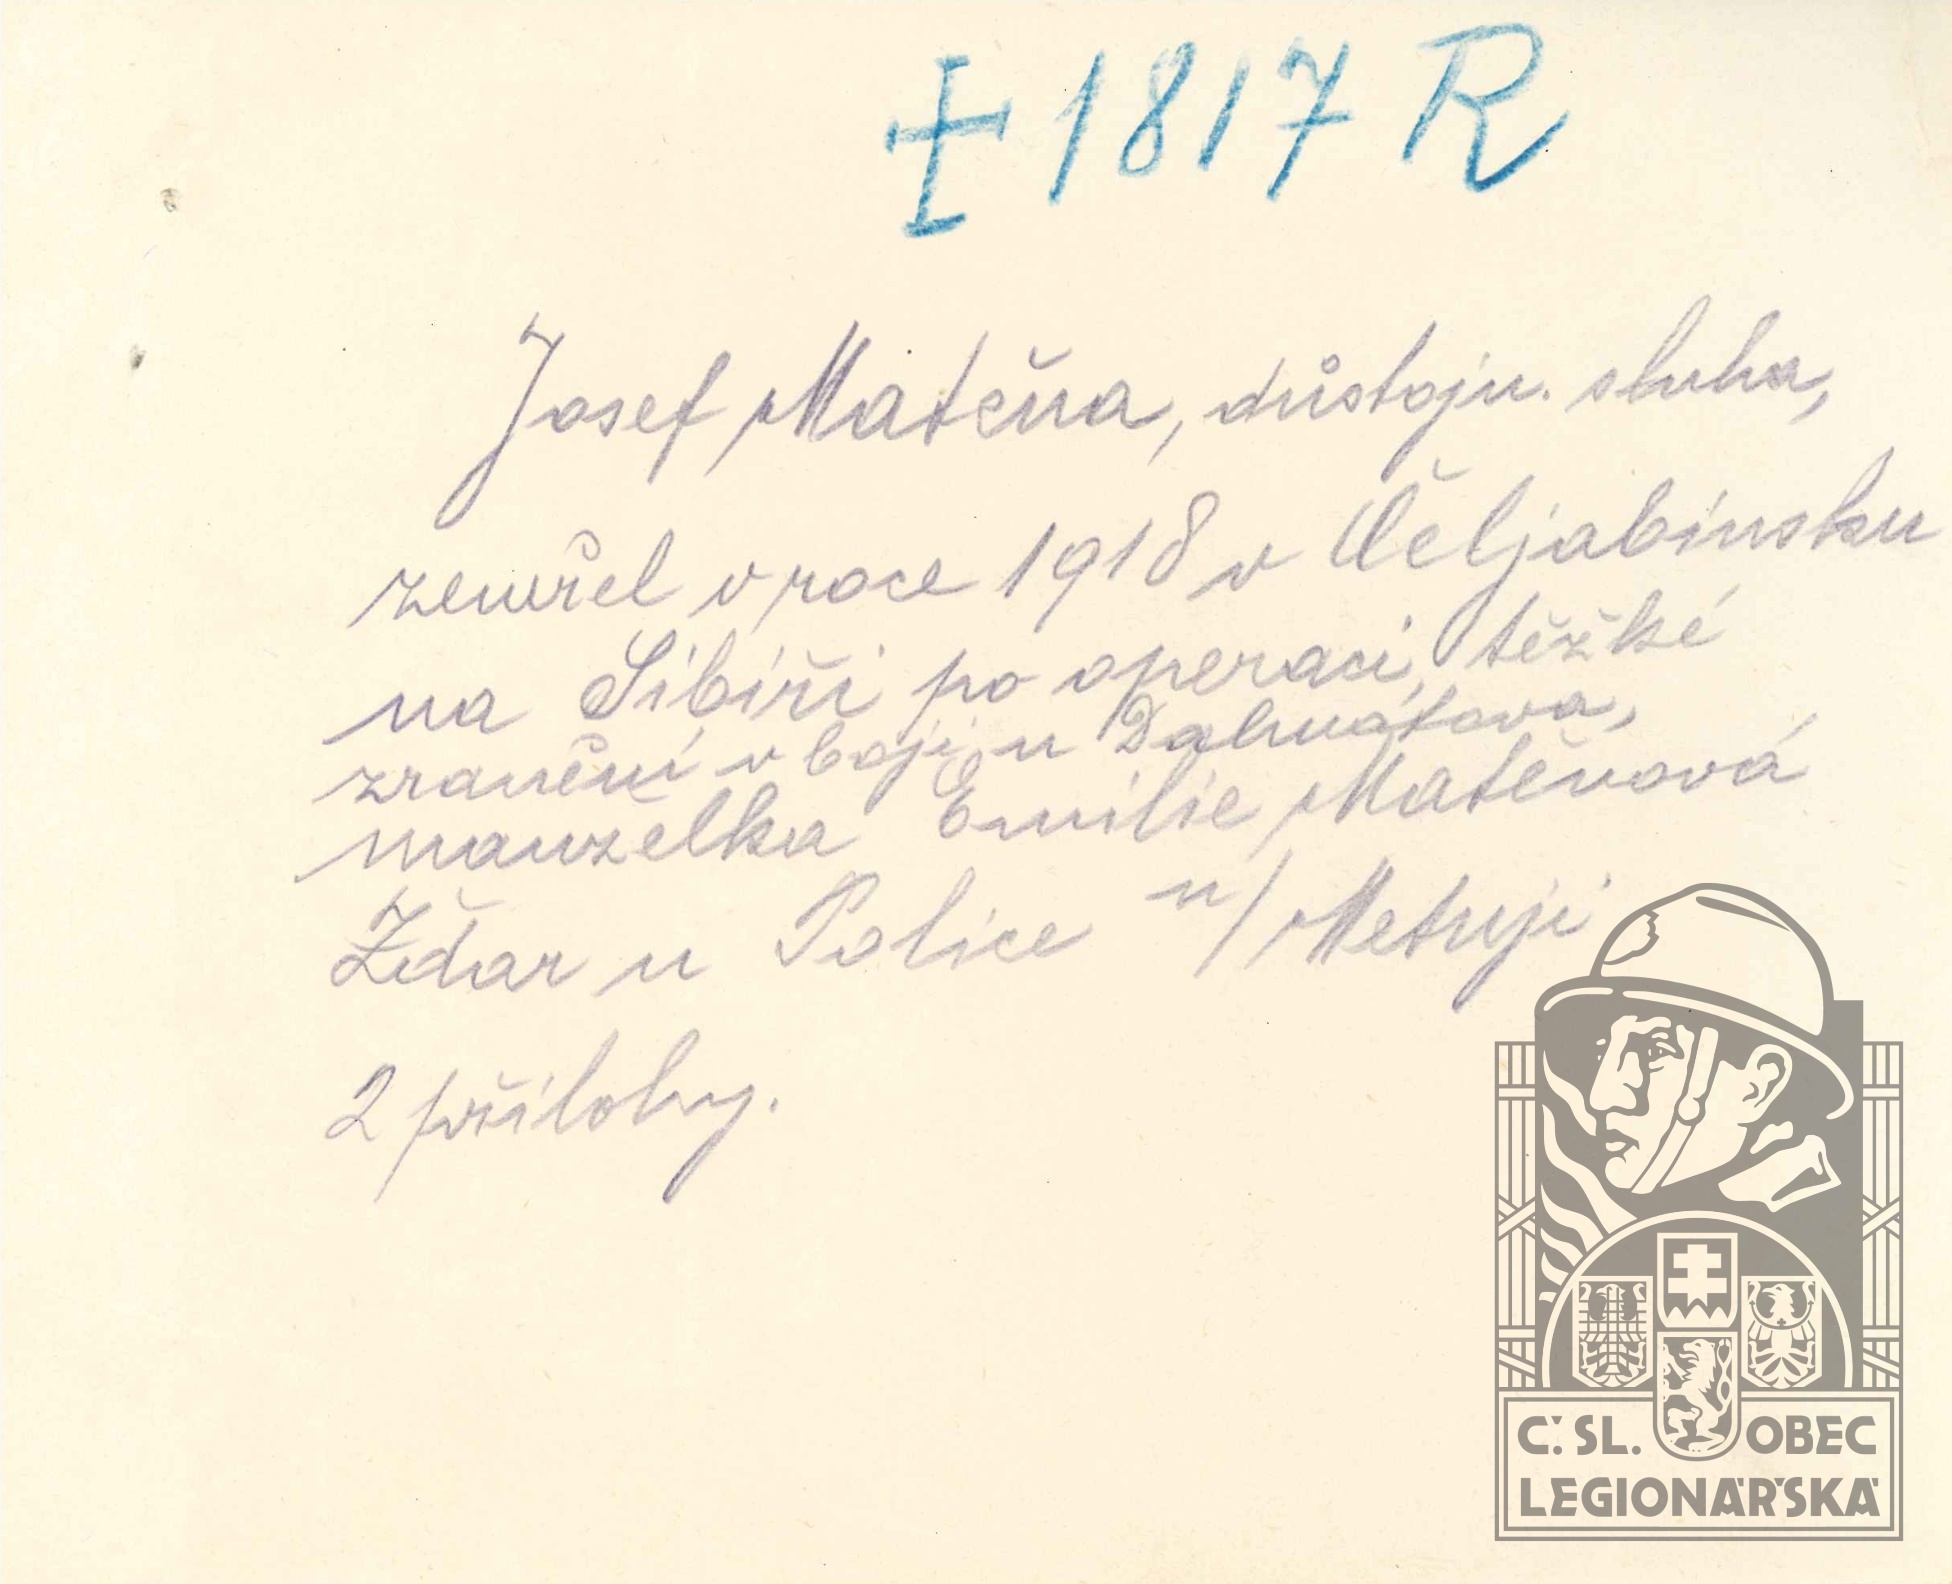 † 1817 R
Josef Matěna, důstojn. sluha,
zemřel v roce 1918 v Čeljabinsku
na Sibiři po operaci, těžké
zranění v boji u Dalmatova,
manželka Emilie Matěnová
Žďar u Police n/Metují
2 přílohy.
Č. SL. OBEC
LEGIONÁŘSKÁ